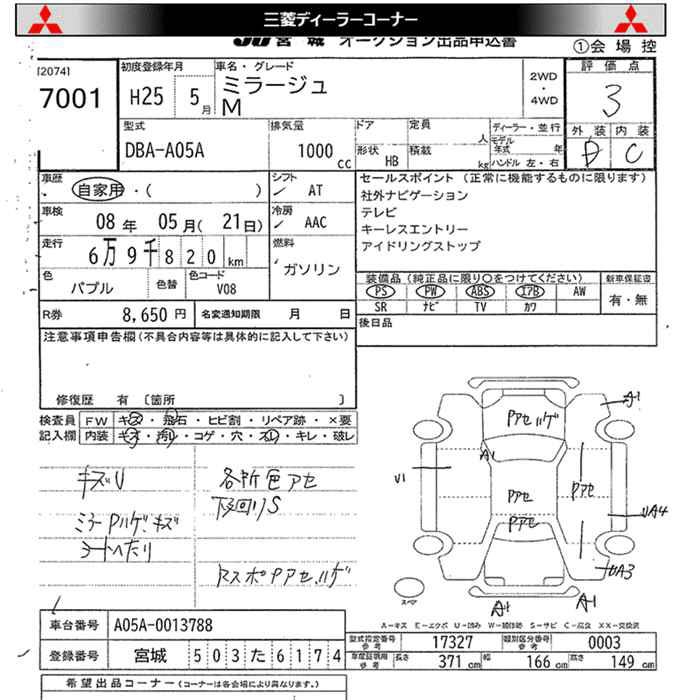 三菱ディーラーコーナー
JU 宮城 オークション出品申込書
①会場控
[20741
7001
初度登録年月
H25 5月
車名・グレード
ミラージュ
M
2WD
・
4WD
評価点
3
外装 内装
D C
型式
DBA-A05A
排気量
1000 cc
ドア
形状 HB
定員 人
積載 kg
ディーラー・並行
モデル年式 年
ハンドル 左・右
車歴
自家用・( )
シフト
AT
車検
08年 05月(21日)
冷房
AAC
走行
6万9千820km
燃料
ガソリン
色
パプル
色替
色コード
V08
セールスポイント (正常に機能するものに限ります)
社外ナビゲーション
テレビ
キーレスエントリー
アイドリングストップ
装備品(純正品に限り○をつけてください)
PS PW ABS エアB AW
SR ナビ TV カワ
新車保証書
有・無
R券 8,650円
名変通知期限 月 日
後日品
注意事項申告欄(不具合内容等は具体的に記入して下さい)
修復歴 有 〔箇所 〕
検査員 FW キズ・飛石・ヒビ割・リペア跡・×要
記入欄 内装 キズ・汚れ・コゲ・穴・スレ・キレ・破レ
キズU
ミラーPハゲ、キズ
シートへたり
各所色アセ
下回りS
マスポPアセ、ハゲ
Pアセ ハゲ
A1
A1
U1
Pアセ
Pアセ
Pアセ
UA4
UA3
A1
A1
スペア
A-キズ E-エクボ U-凹み W-補修跡 S-サビ C-腐食 XX-交換済
車台番号 A05A-0013788
登録番号 宮城 503た6174
型式指定番号 参考 17327
類別区分番号 参考 0003
車庫証明用 参考 長さ 371cm 幅 166cm 高さ 149cm
希望出品コーナー(コーナーは各会場により異なります。)